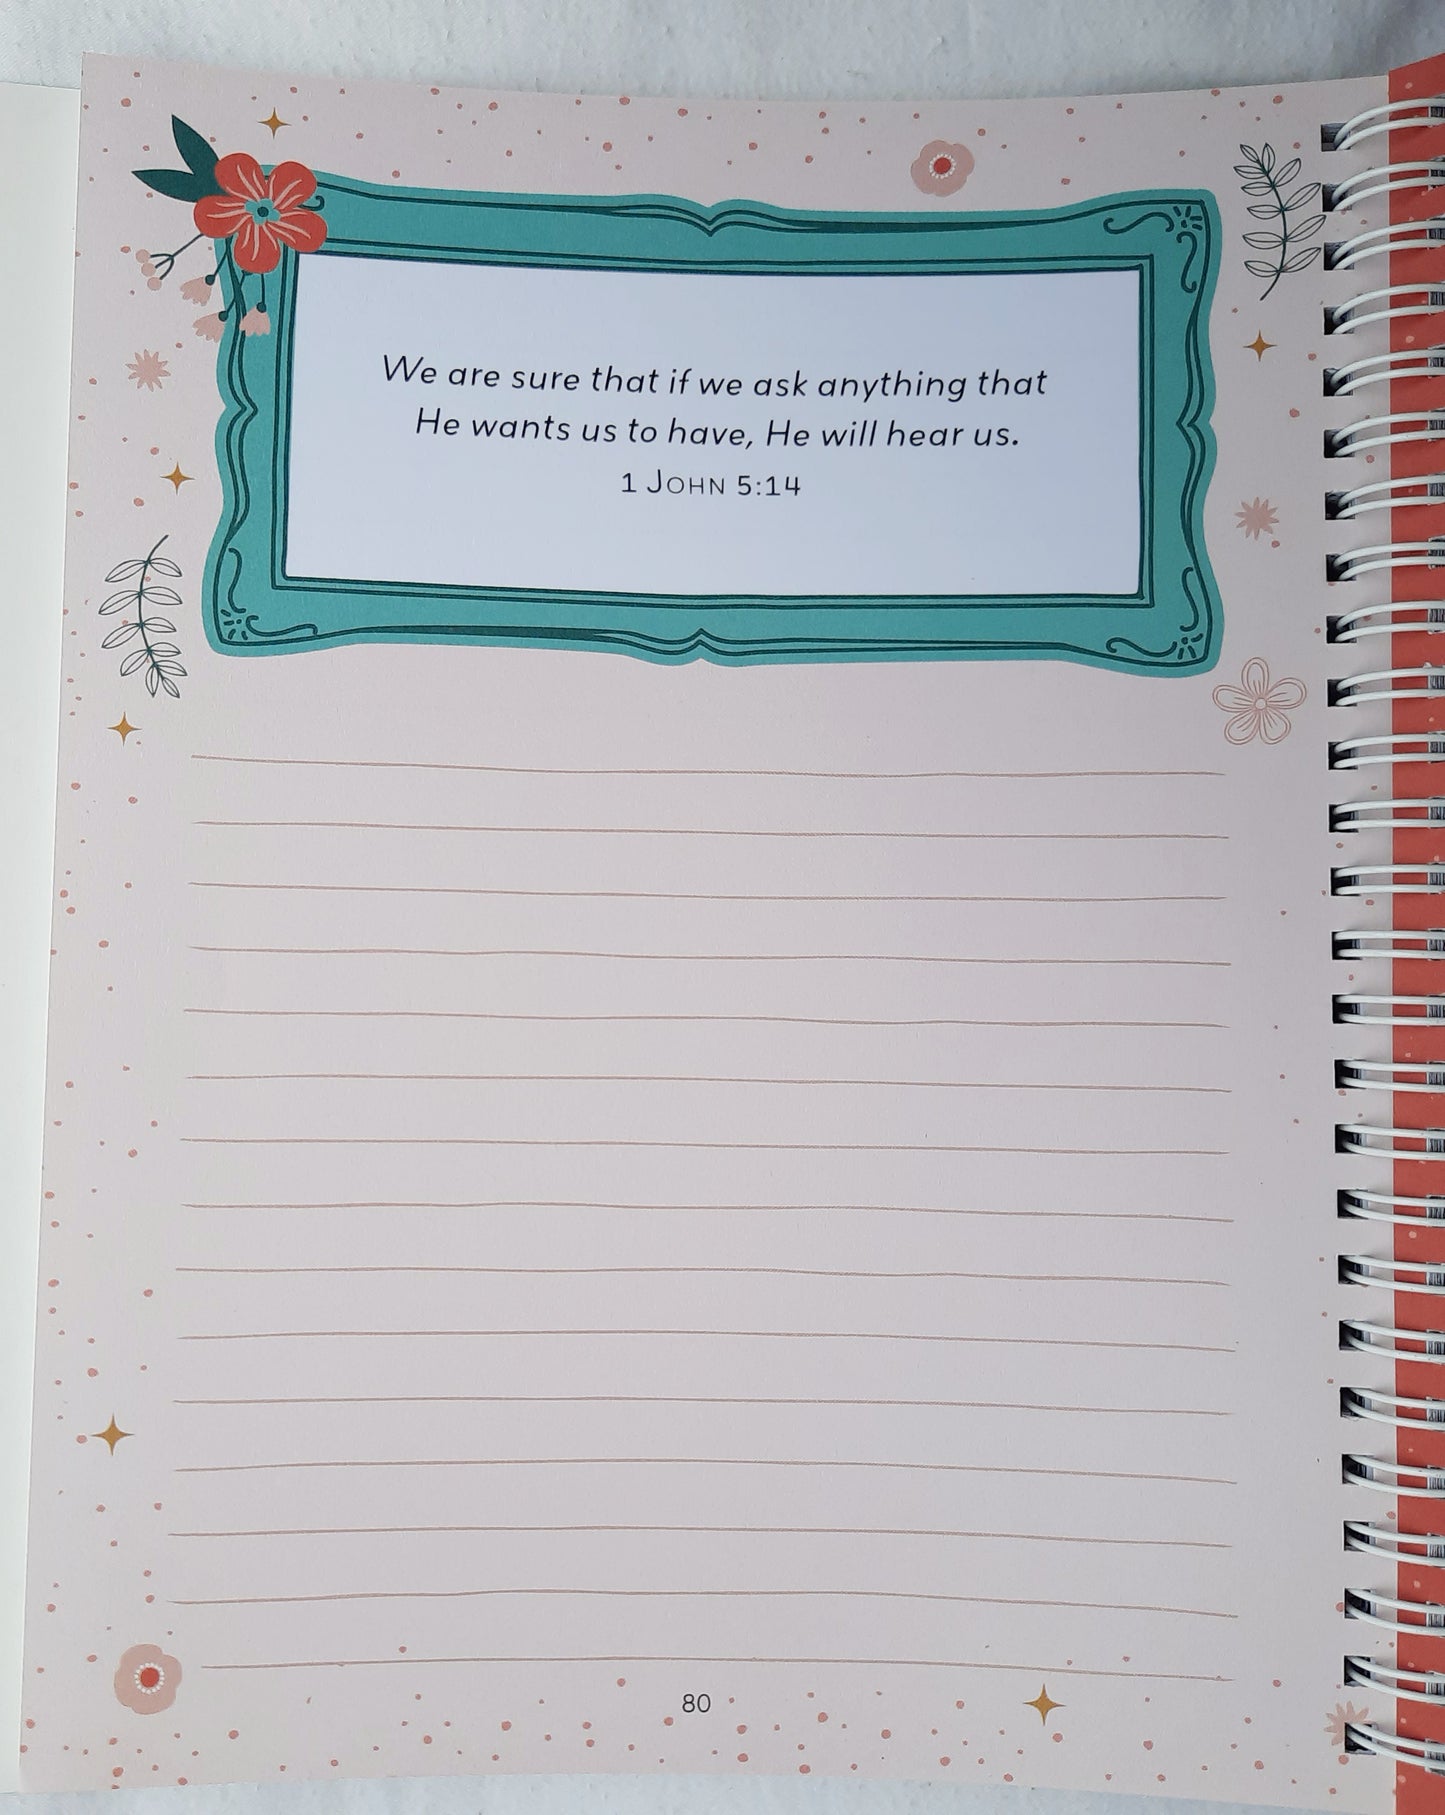 We are sure that if we ask anything that
He wants us to have, He will hear us.
1 JOHN 5:14
80